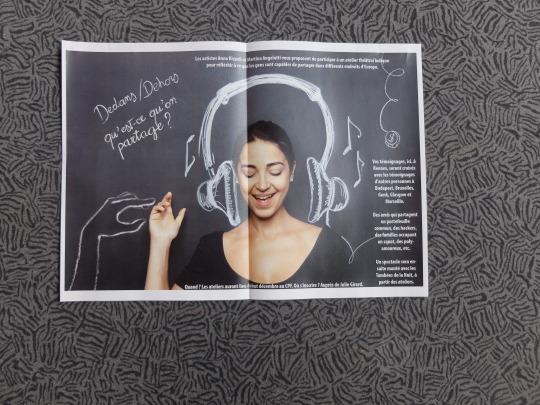 Les artistes Anna Rispoli et Martina Angelotti vous proposent de participer à un atelier théâtral ludique
pour réfléchir à ce que les gens sont capables de partager dans différents endroits d'Europe.
Dedans/Dehors
qu'est-ce qu'on
partage?
Vos témoignages, ici, à
Rennes, seront croisés
avec les témoignages
d'autres personnes à
Budapest, Bruxelles,
Genk, Glasgow et
Marseille.
Des amis qui partagent
un portefeuille
commun, des hackers,
des familles occupant
un squat, des poly-
amoureux, etc.
Un spectacle sera en-
suite monté avec les
Tombées de la Nuit, à
partir des ateliers.
Quand ? Les ateliers auront lieu début décembre au CPF. Où s'inscrire ? Auprès de Julie Girard.